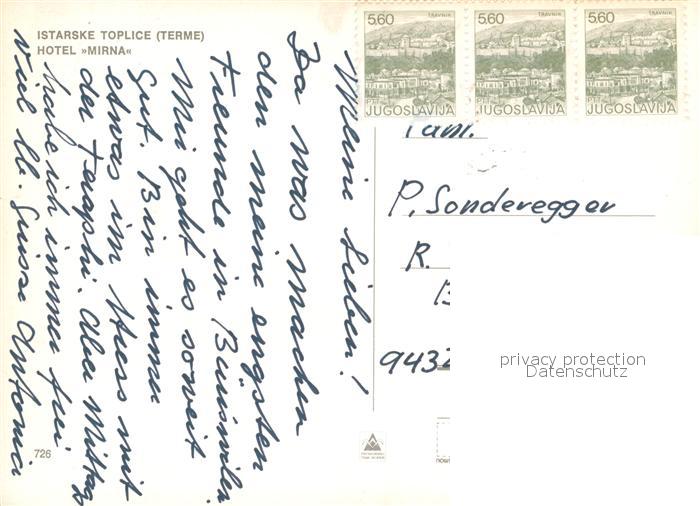 ISTARSKE TOPLICE (TERME)
HOTEL »MIRNA«
Meine Lieben!
Ja was machen
den meine engsten
Freunde in
Mir geht es soweit
gut. Bin immer
etwas im Stress mit
der Teraphi. Aber Mittag
habe ich immer frei
Viel lb. Grüsse Antonia
726
5.60 TRAVNIK
JUGOSLAVIJA
5.60 TRAVNIK
JUGOSLAVIJA
5.60 TRAVNIK
JUGOSLAVIJA
Fam.
P. Sonderegger
R.
B
9432
privacy protection
Datenschutz